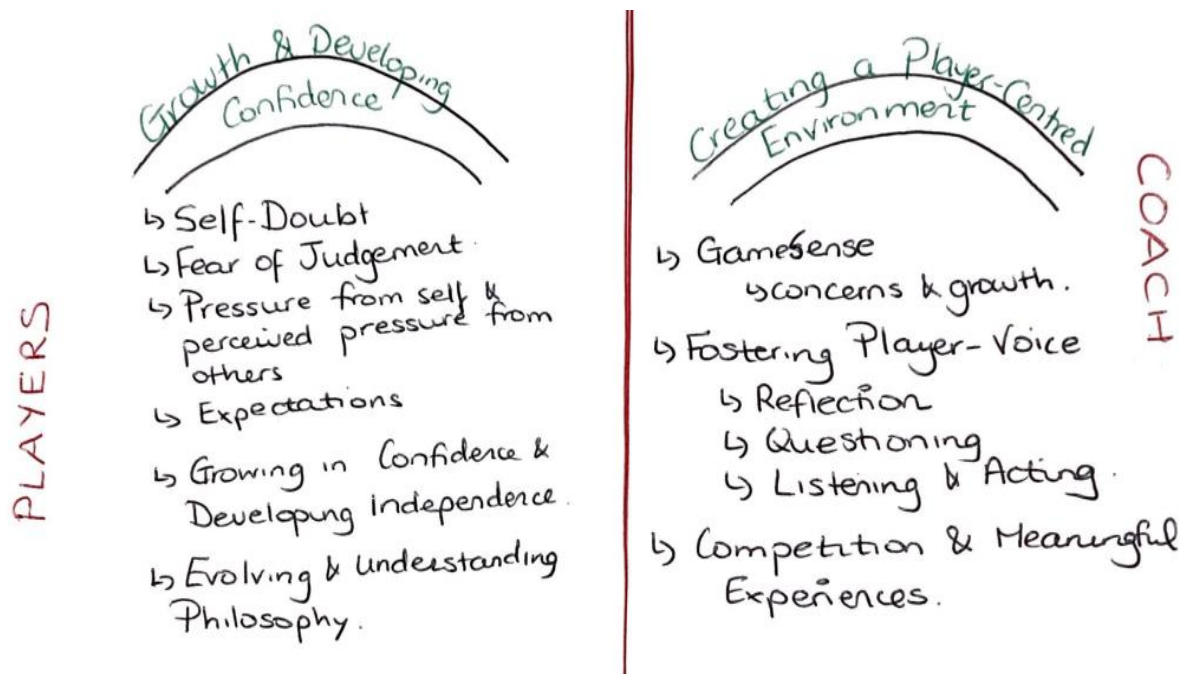 PLAYERS
Growth & Developing
Confidence
↳ Self-Doubt
↳ Fear of Judgement.
↳ Pressure from self &
perceived pressure from
others
↳ Expectations
↳ Growing in Confidence &
Developing independence.
↳ Evolving & Understanding
Philosophy.
COACH
Creating a Player-Centred
Environment
↳ GameSense
↳ concerns & growth.
↳ Fostering Player-Voice
↳ Reflection
↳ Questioning
↳ Listening & Acting.
↳ Competition & Meaningful
Experiences.